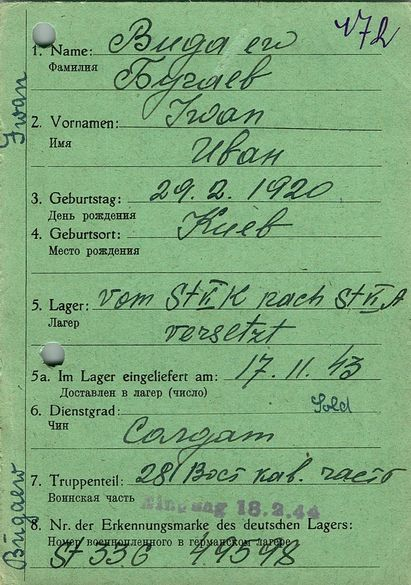 172
1. Name: Бугаев
Фамилия
Бугаев
2. Vornamen: Iwan
Имя
Иван
3. Geburtstag: 29. 2. 1920
День рождения
4. Geburtsort: Киев
Место рождения
5. Lager: vom St II K nach St II A
Лагерь
versetzt
5a. Im Lager eingeliefert am: 17. 11. 43
Доставлен в лагер (число)
6. Dienstgrad: Sold
Чин
Солдат
7. Truppenteil: 28 Вост кав. часть
Воинская часть
Eingang 18. 2. 44
8. Nr. der Erkennungsmarke des deutschen Lagers:
Номер военнопленного в германском лагере
St 336 49598
Iwan
Bugaew